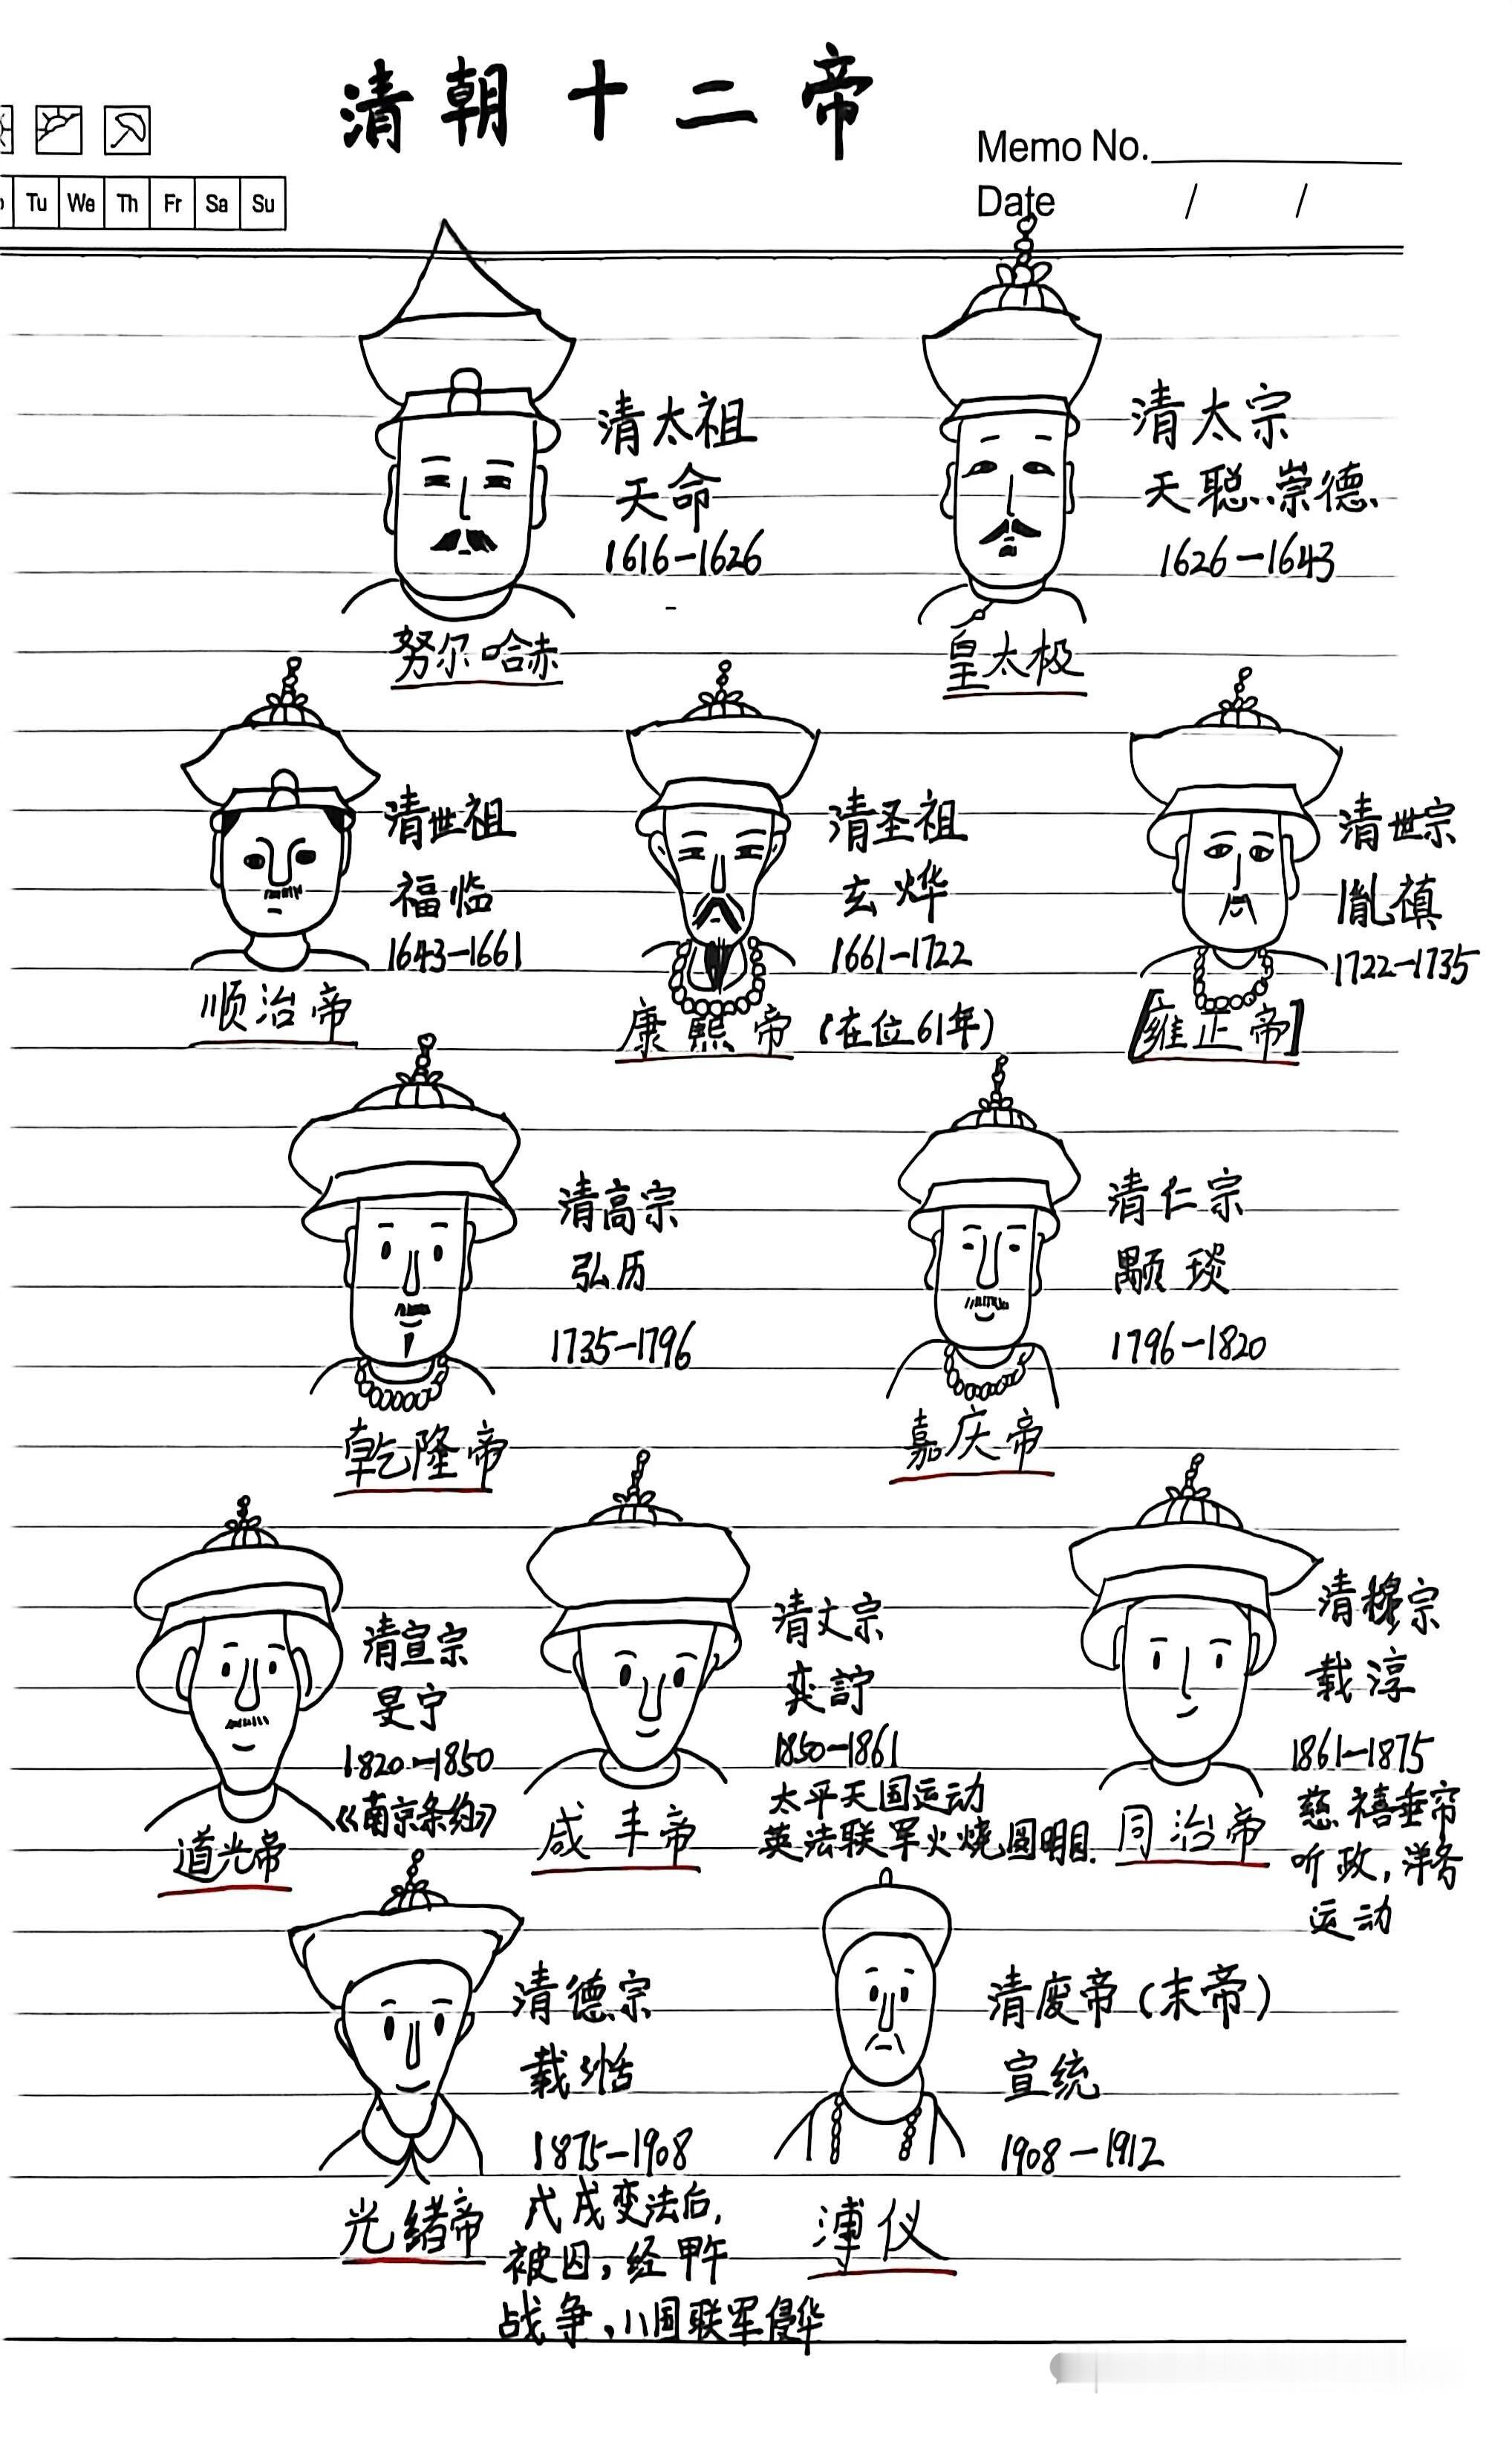 清朝十二帝
Memo No.
Date / /
Tu We Th Fr Sa Su
清太祖
天命
1616-1626
努尔哈赤
清太宗
天聪、崇德、
1626-1643
皇太极
清世祖
福临
1643-1661
顺治帝
清圣祖
玄烨
1661-1722
康熙帝(在位61年)
清世宗
胤禛
1722-1735
[雍正帝]
清高宗
弘历
1735-1796
乾隆帝
清仁宗
颙琰
1796-1820
嘉庆帝
清宣宗
旻宁
1820-1850
《南京条约》
道光帝
清文宗
奕詝
1850-1861
太平天国运动
英法联军火烧圆明园.
咸丰帝
清穆宗
载淳
1861-1875
慈禧垂帘
听政,洋务
运动
同治帝
清德宗
载湉
1875-1908
戊戌变法后,
被囚,经甲午
战争,八国联军侵华
光绪帝
清废帝(末帝)
宣统
1908-1912
溥仪